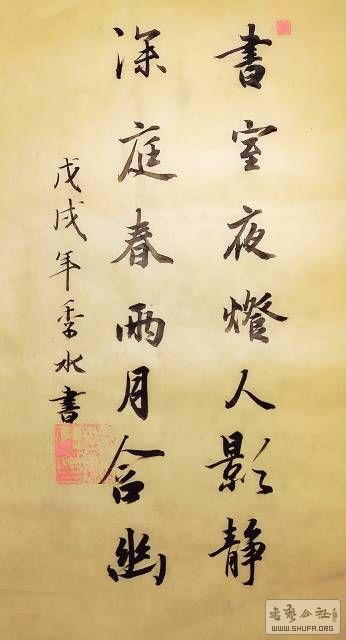 書室夜燈人影静
深庭春雨月含幽
戊戌年季水書
公社
WWW.SHUFA.ORG